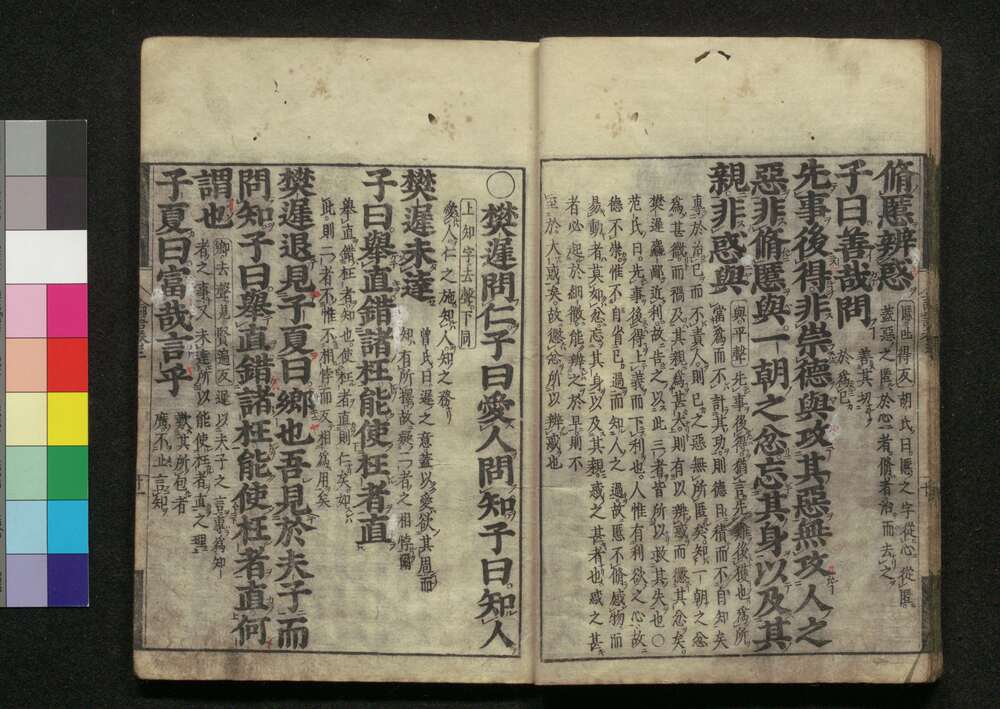 脩慝辨惑
慝吐得反胡氏曰慝之字從心從匿
蓋惡之匿於心者脩者治而去之
子曰善哉問
善其切
於爲己
先事後得非崇德與攻其惡無攻人之
惡非脩慝與一朝之忿忘其身以及其
親非惑與
與平聲先事後得猶言先難後獲也爲所
當爲而不計其功則德日積而不自知矣
專於治己而不責人則己之惡無所匿矣知一朝之忿
爲甚微而禍及其親爲甚大則有以辨惑而懲其忿矣
樊遲麤鄙近利故告之以此三者皆所以救其失也○
范氏曰先事後得上義而下利也人惟有利欲之心故
德不崇惟不自省己過而知人之過故慝不脩感物而
易動者莫如忿忘其身以及其親惑之甚者也惑之甚
者必起於細微能辨之於早則不
至於大惑矣故懲忿所以辨惑也
○樊遲問仁子曰愛人問知子曰知人
上知字去聲下同
愛人仁之施知人知之務
樊遲未達
曾氏曰遲之意蓋以愛欲其周而
知有所擇故疑二者之相悖爾
子曰舉直錯諸枉能使枉者直
舉直錯枉者知也使枉者直則仁矣如
此則二者不惟不相悖而反相爲用矣
樊遲退見子夏曰鄉也吾見於夫子而
問知子曰舉直錯諸枉能使枉者直何
謂也
鄉去聲見賢遍反遲以夫子之言專爲知
者之事又未達所以能使枉者直之理
子夏曰富哉言乎
歎其所包者
廣不止言知